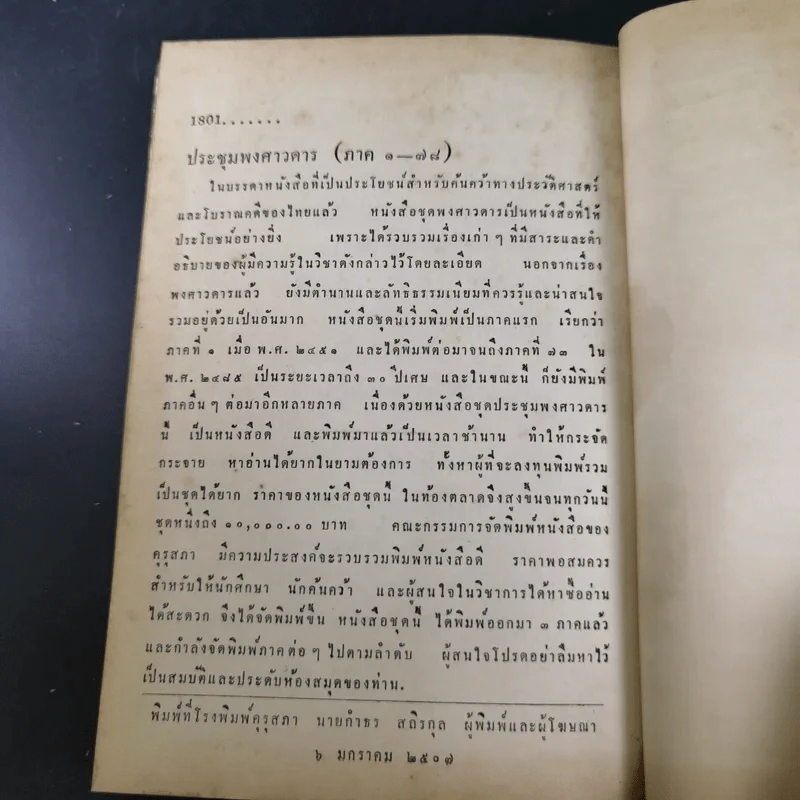 1801.......
ประชุมพงศาวดาร (ภาค ๑—๗๘)
ในบรรดาหนังสือที่เป็นประโยชน์สำหรับค้นคว้าทางประวัติศาสตร์
และโบราณคดีของไทยแล้ว หนังสือชุดพงศาวดารเป็นหนังสือที่ให้
ประโยชน์อย่างยิ่ง เพราะได้รวบรวมเรื่องเก่า ๆ ที่มีสาระและคำ
อธิบายของผู้มีความรู้ในวิชาดังกล่าวไว้โดยละเอียด นอกจากเรื่อง
พงศาวดารแล้ว ยังมีตำนานและลัทธิธรรมเนียมที่ควรรู้และน่าสนใจ
รวมอยู่ด้วยเป็นอันมาก หนังสือชุดนี้เริ่มพิมพ์เป็นภาคแรก เรียกว่า
ภาคที่ ๑ เมื่อ พ.ศ. ๒๔๕๑ และได้พิมพ์ต่อมาจนถึงภาคที่ ๗๓ ใน
พ.ศ. ๒๔๘๕ เป็นระยะเวลาถึง ๓๐ ปีเศษ และในขณะนี้ ก็ยังมีพิมพ์
ภาคอื่น ๆ ต่อมาอีกหลายภาค เนื่องด้วยหนังสือชุดประชุมพงศาวดาร
นี้ เป็นหนังสือดี และพิมพ์มาแล้วเป็นเวลาช้านาน ทำให้กระจัด
กระจาย หาอ่านได้ยากในยามต้องการ ทั้งหาผู้ที่จะลงทุนพิมพ์รวม
เป็นชุดได้ยาก ราคาของหนังสือชุดนี้ ในท้องตลาดจึงสูงขึ้นจนทุกวันนี้
ชุดหนึ่งถึง ๑๐,๐๐๐.๐๐ บาท คณะกรรมการจัดพิมพ์หนังสือของ
คุรุสภา มีความประสงค์จะรวบรวมพิมพ์หนังสือดี ราคาพอสมควร
สำหรับให้นักศึกษา นักค้นคว้า และผู้สนใจในวิชาการได้หาซื้ออ่าน
ได้สะดวก จึงได้จัดพิมพ์ขึ้น หนังสือชุดนี้ ได้พิมพ์ออกมา ๓ ภาคแล้ว
และกำลังจัดพิมพ์ภาคต่อ ๆ ไปตามลำดับ ผู้สนใจโปรดอย่าลืมหาไว้
เป็นสมบัติและประดับห้องสมุดของท่าน.
พิมพ์ที่โรงพิมพ์คุรุสภา นายกำธร สถิรกุล ผู้พิมพ์และผู้โฆษณา
๖ มกราคม ๒๕๐๗